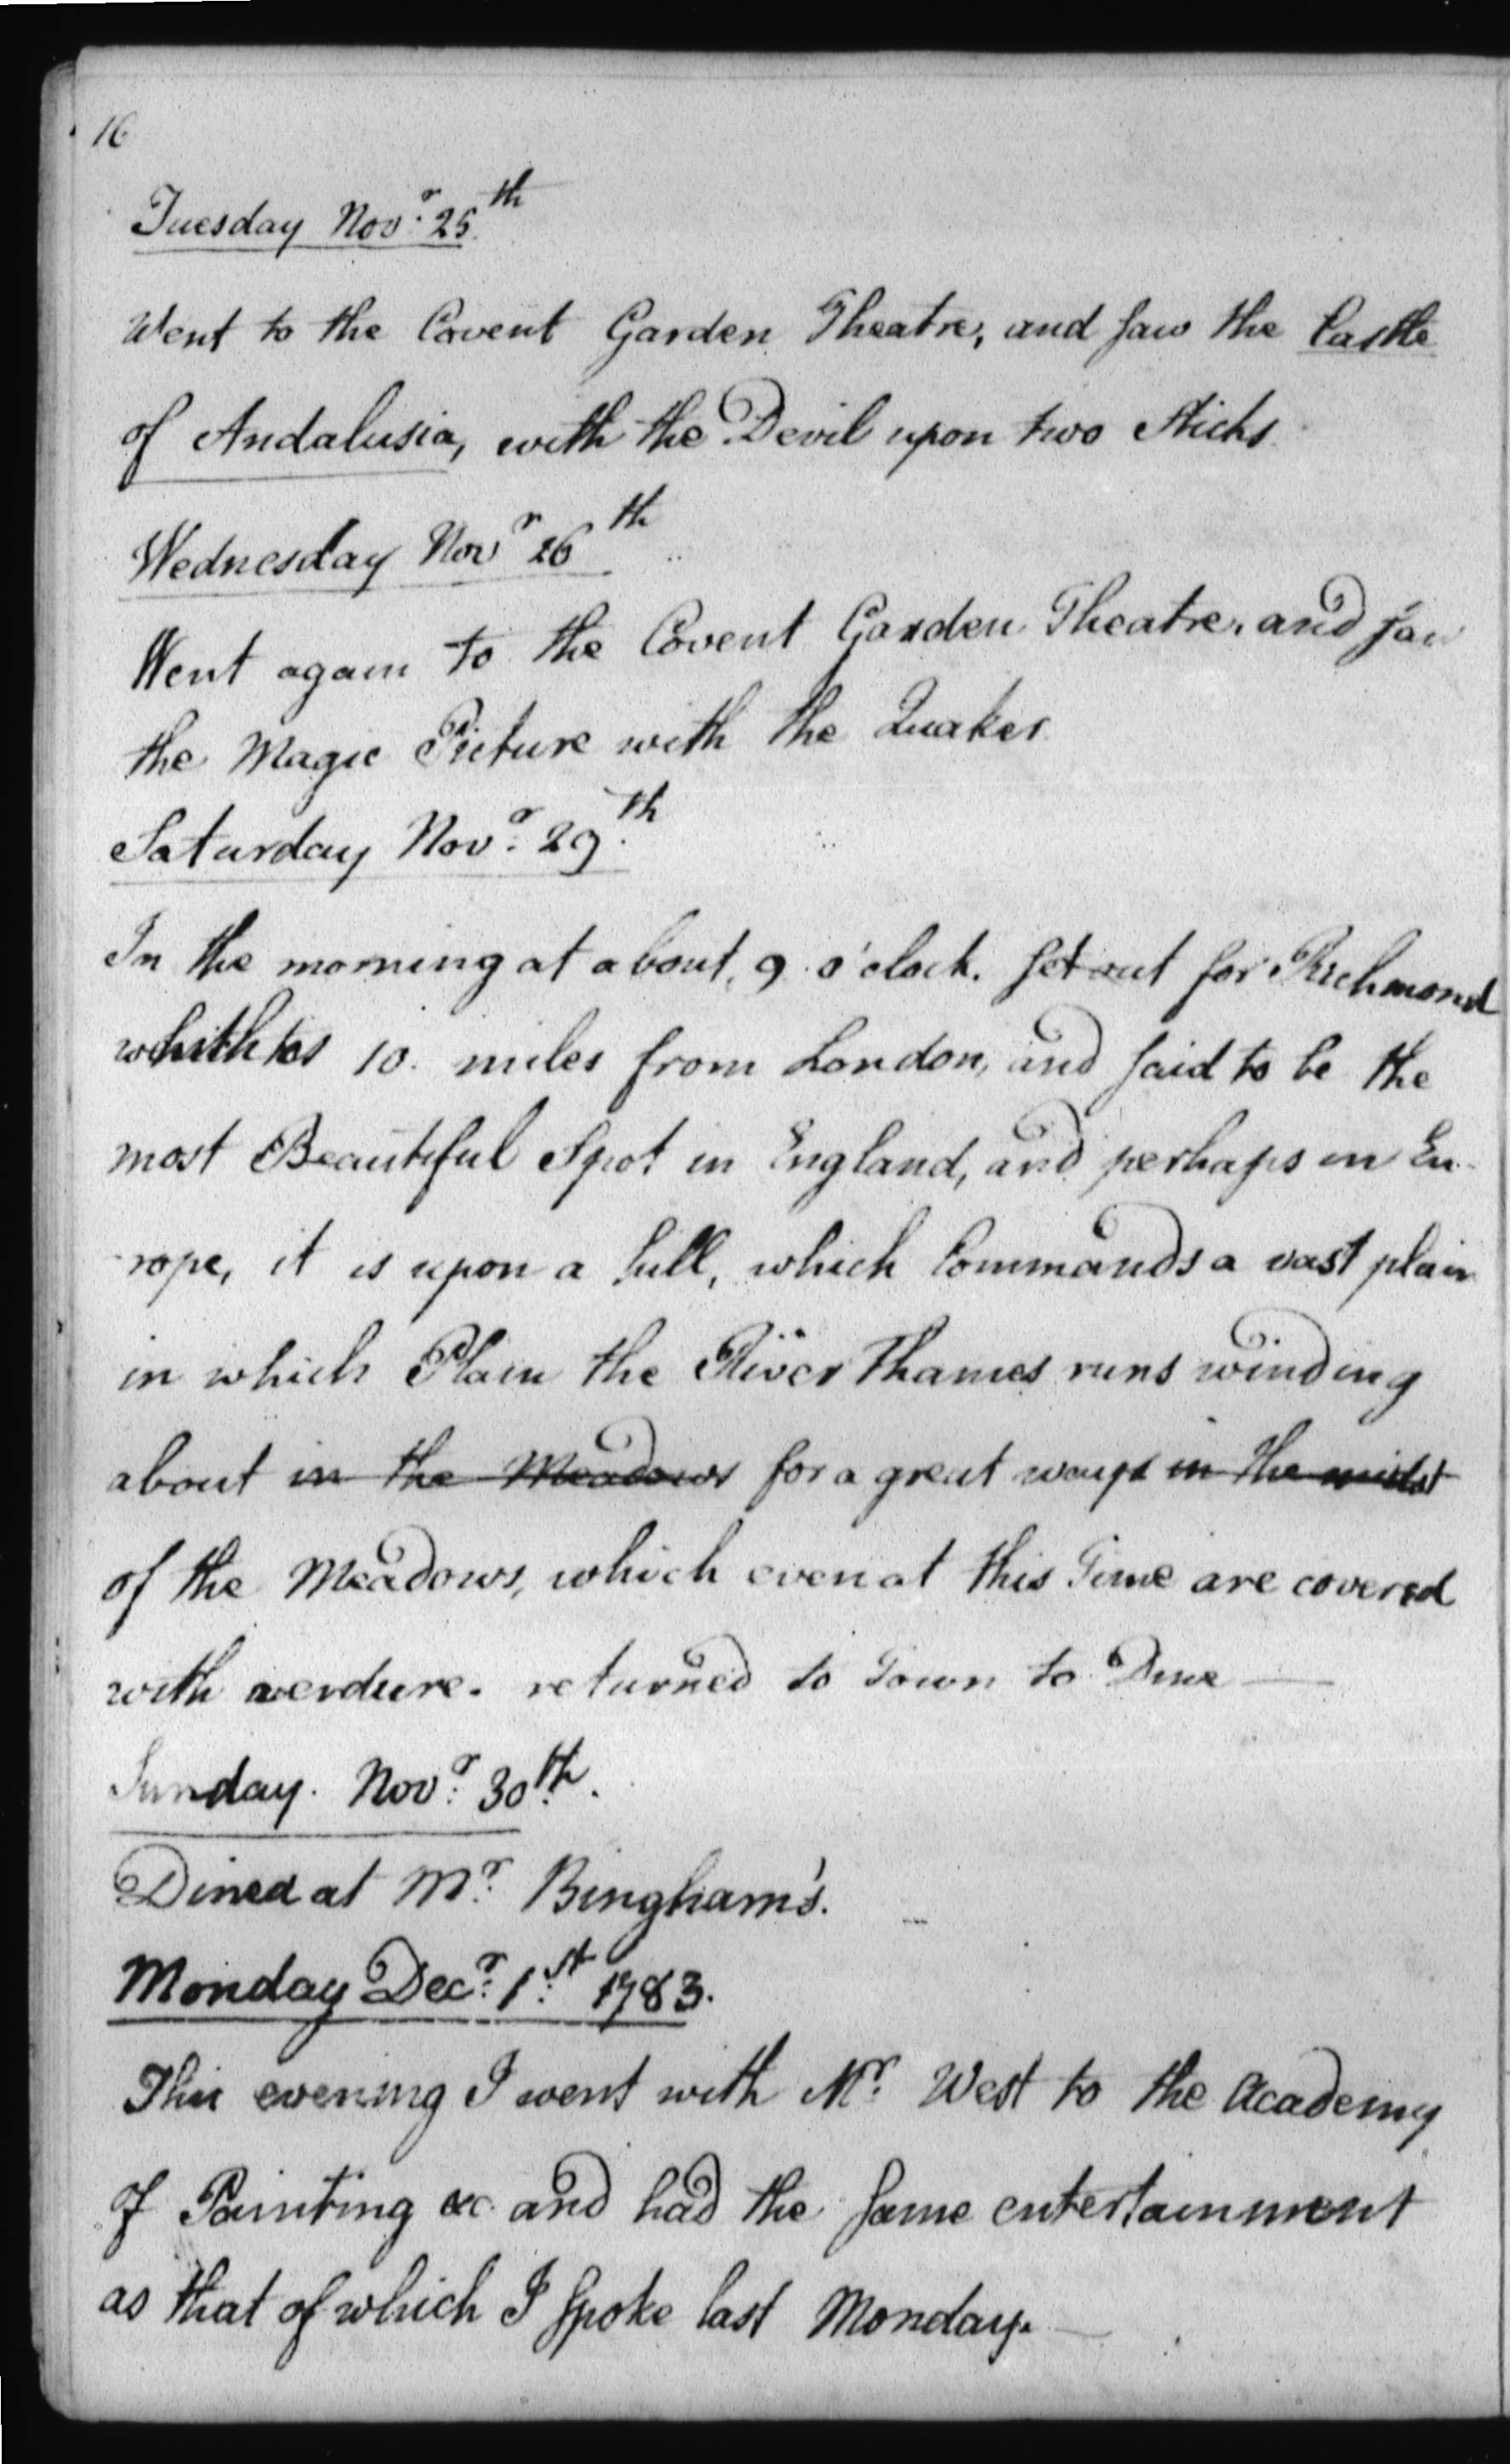 16
Tuesday Novr. 25th
Went to the Covent Garden Theatre, and saw the Castle
of Andalusia, with the Devil upon two Sticks
Wednesday Novr 26th
Went again to the Covent Garden Theatre, and saw
the Magic Picture with the Quaker
Saturday Novr. 29th.
In the morning at about, 9 o'clock. set out for Richmond
10. miles from London, and said to be the
most Beautiful Spot in England, and perhaps in Eu-
-rope, it is upon a hill, which Commands a vast plain
in which Plain the River Thames runs winding
about in the Meadows for a great ways in the midst
of the Meadows, which even at this Time are covered
with verdure. returned to Town to Dine —
Sunday. Novr. 30th.
Dined at Mr. Bingham's.
Monday Decr. 1st. 1783.
This evening I went with Mr. West to the Academy
of Painting &c and had the same entertainment
as that of which I spoke last Monday. —